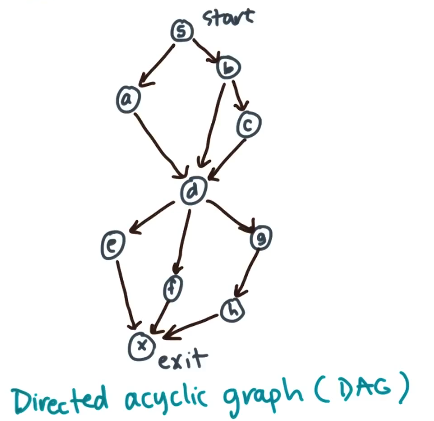 s start
b
a
c
d
e
g
f
h
x
exit
Directed acyclic graph (DAG)